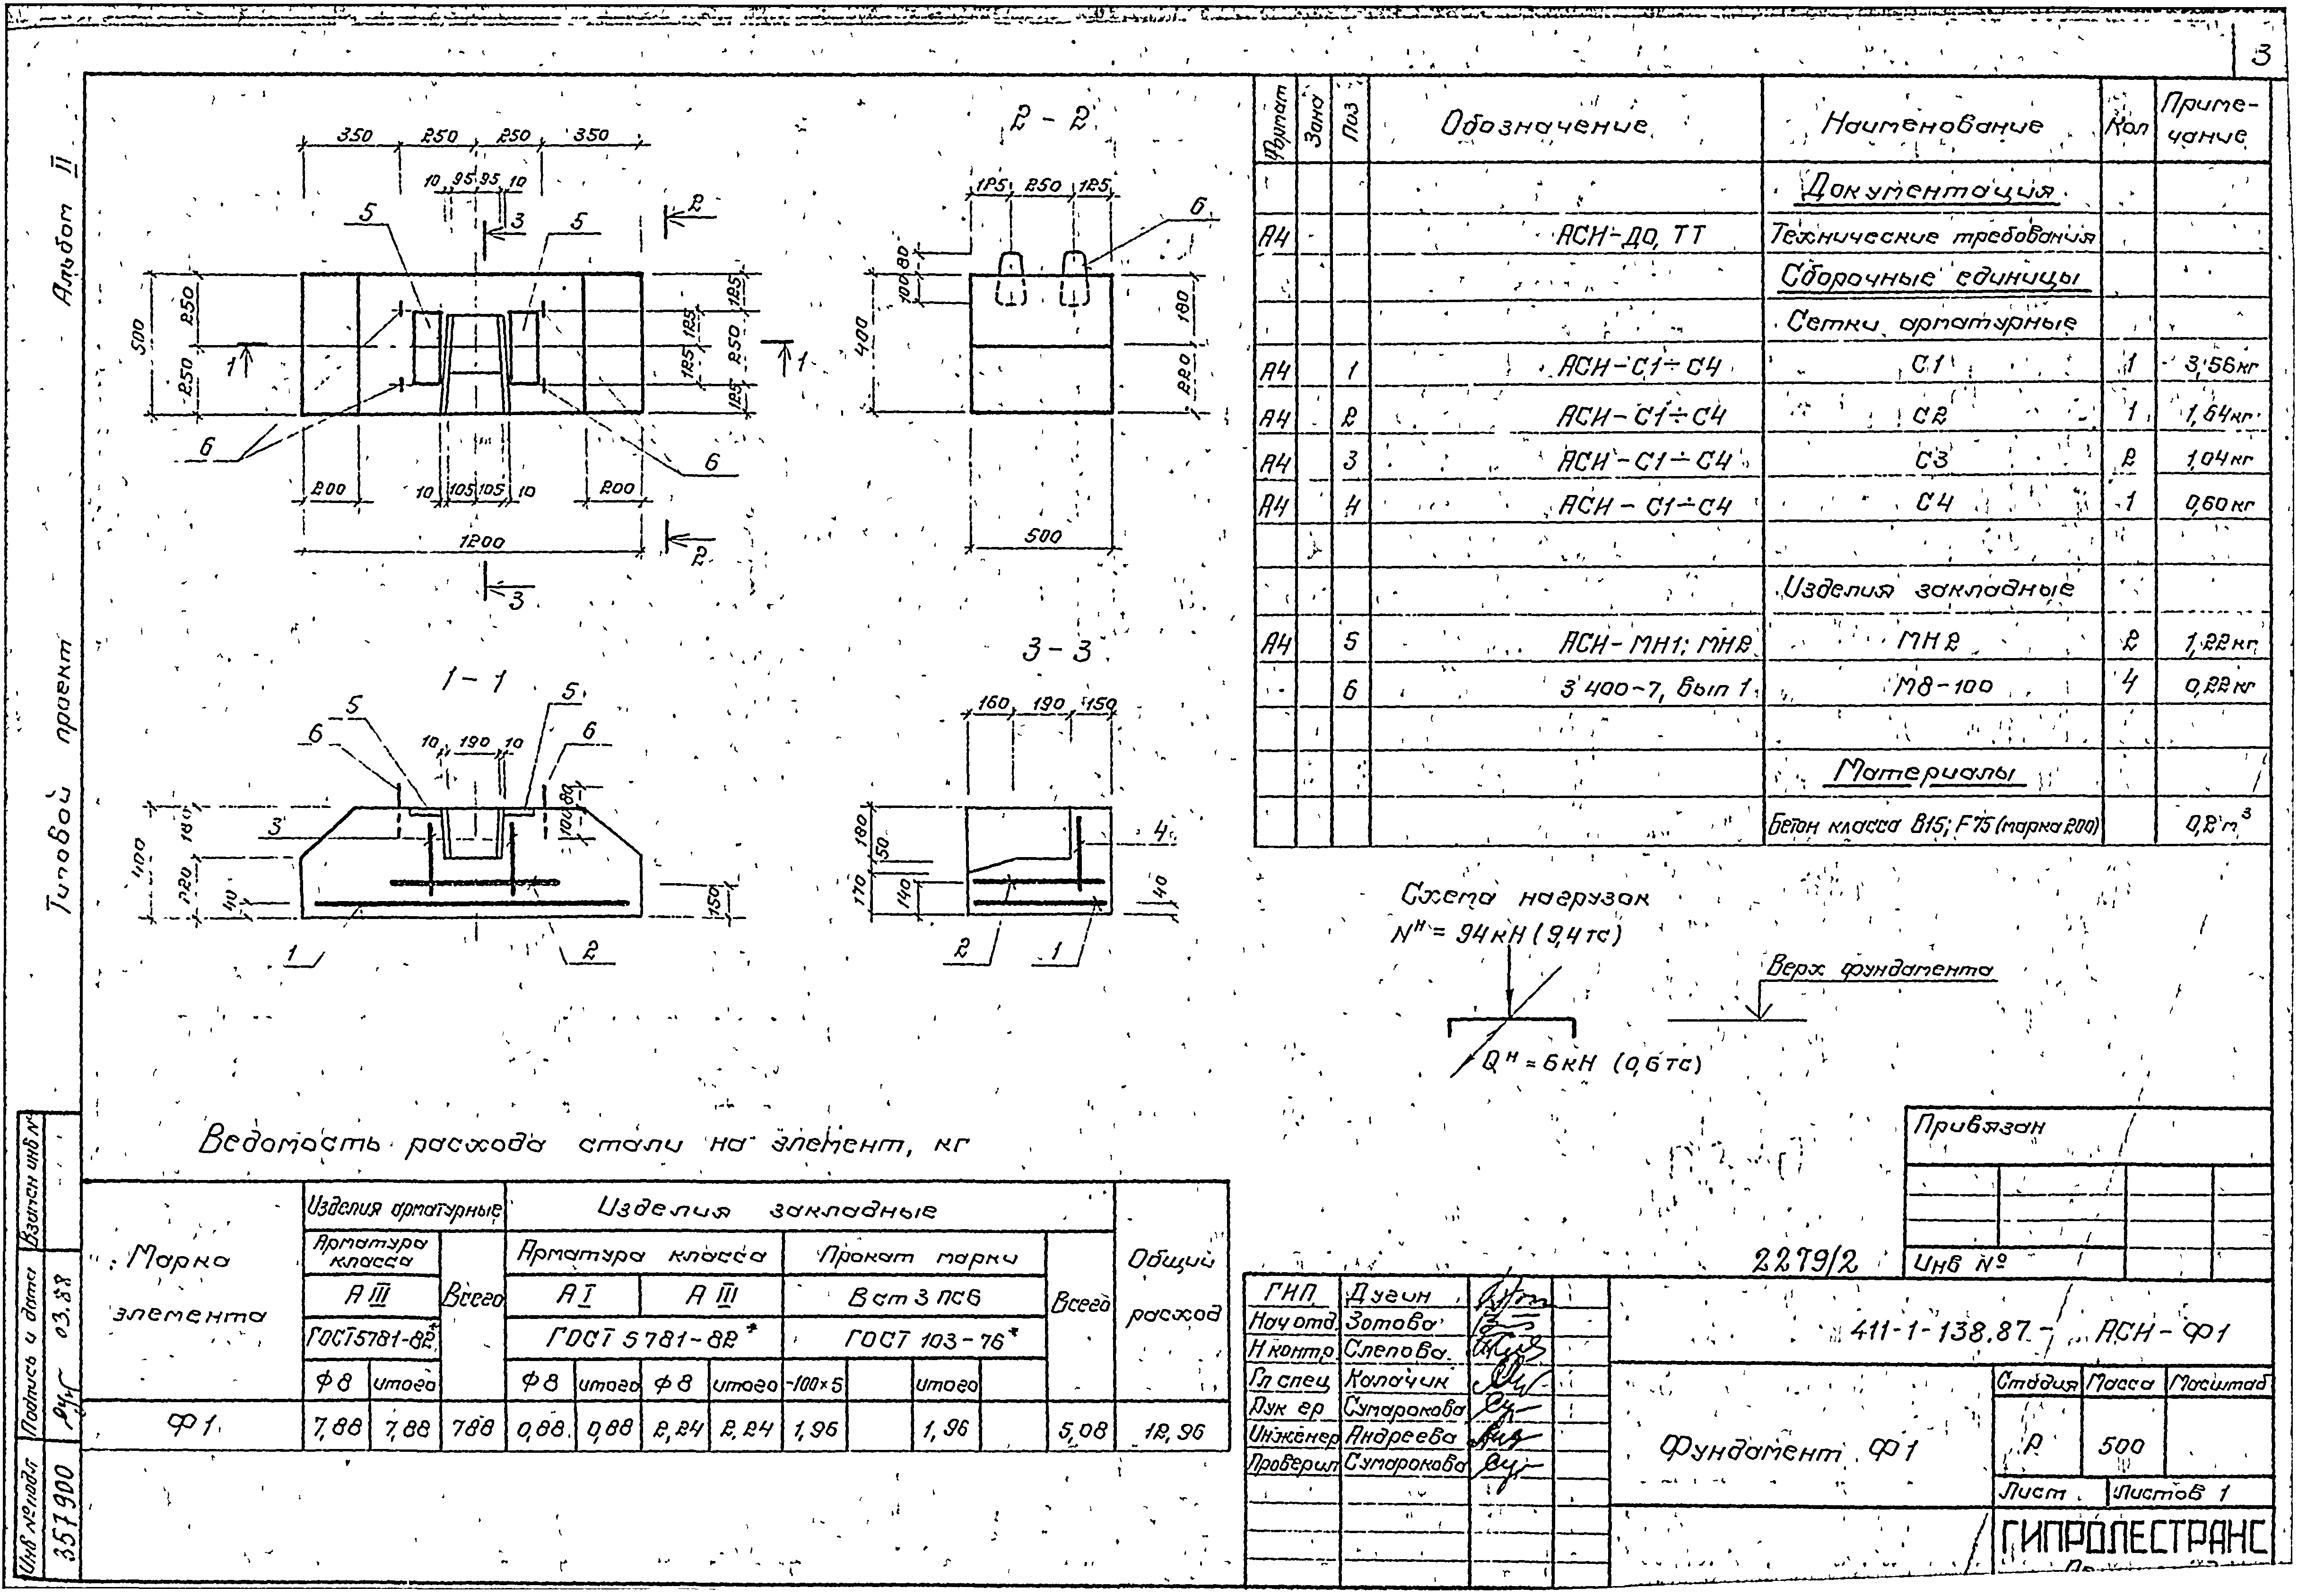 3
Альбом II
Типовой проект
350 250 250 350
10 95 95 10
5 3 5 2
500 250 250
1 1
125 250 125
125 125
6 6
200 10 105 105 10 200
1200
2
3
2-2
125 250 125
6
80
100
400
180
220
500
1-1
5 5
6 6
10 190 10
80
100
3
400 180 220 40
150
1 2
3-3
160 190 150
180
50
170
140
4
40
2 1
Формат Зона Поз Обозначение Наименование Кол Приме-
чание
Документация
А4 АСИ-ДО, ТТ Технические требования
Сборочные единицы
Сетки арматурные
А4 1 АСИ-С1÷С4 С1 1 3,56кг
А4 2 АСИ-С1÷С4 С2 1 1,64кг
А4 3 АСИ-С1÷С4 С3 2 1,04кг
А4 4 АСИ-С1÷С4 С4 1 0,60кг
Изделия закладные
А4 5 АСИ-МН1; МН2 МН2 2 1,22кг
6 3 400-7, вып 1 М8-100 4 0,22кг
Материалы
Бетон класса В15; F75 (марка 200) 0,2 м³
Схема нагрузок
Nᴴ = 94кН (9,4тс)
Верх фундамента
Qᴴ = 6кН (0,6тс)
Ведомость расхода стали на элемент, кг
Марка элемента Изделия арматурные Изделия закладные Общий расход
Арматура класса Всего Арматура класса Прокат марки Всего
А III А I А III В ст 3 пс6
ГОСТ 5781-82* ГОСТ 5781-82* ГОСТ 103-76*
Ф8 итого Ф8 итого Ф8 итого -100×5 итого
Ф1 7,88 7,88 788 0,88 0,88 2,24 2,24 1,96 1,96 5,08 12,96
Привязан
Инв №
2279/2
ГИП Дугин
Нач отд Зотова
Н контр Слепова
Гл спец Калачик
Рук гр Сумарокова
Инженер Андреева
Проверил Сумарокова
411-1-138.87- АСИ-Ф1
Фундамент Ф1
Стадия Масса Масштаб
Р 500
Лист Листов 1
ГИПРОЛЕСТРАНС
Взамен инв №
Подпись и дата 03.88
Инв № подл 357900